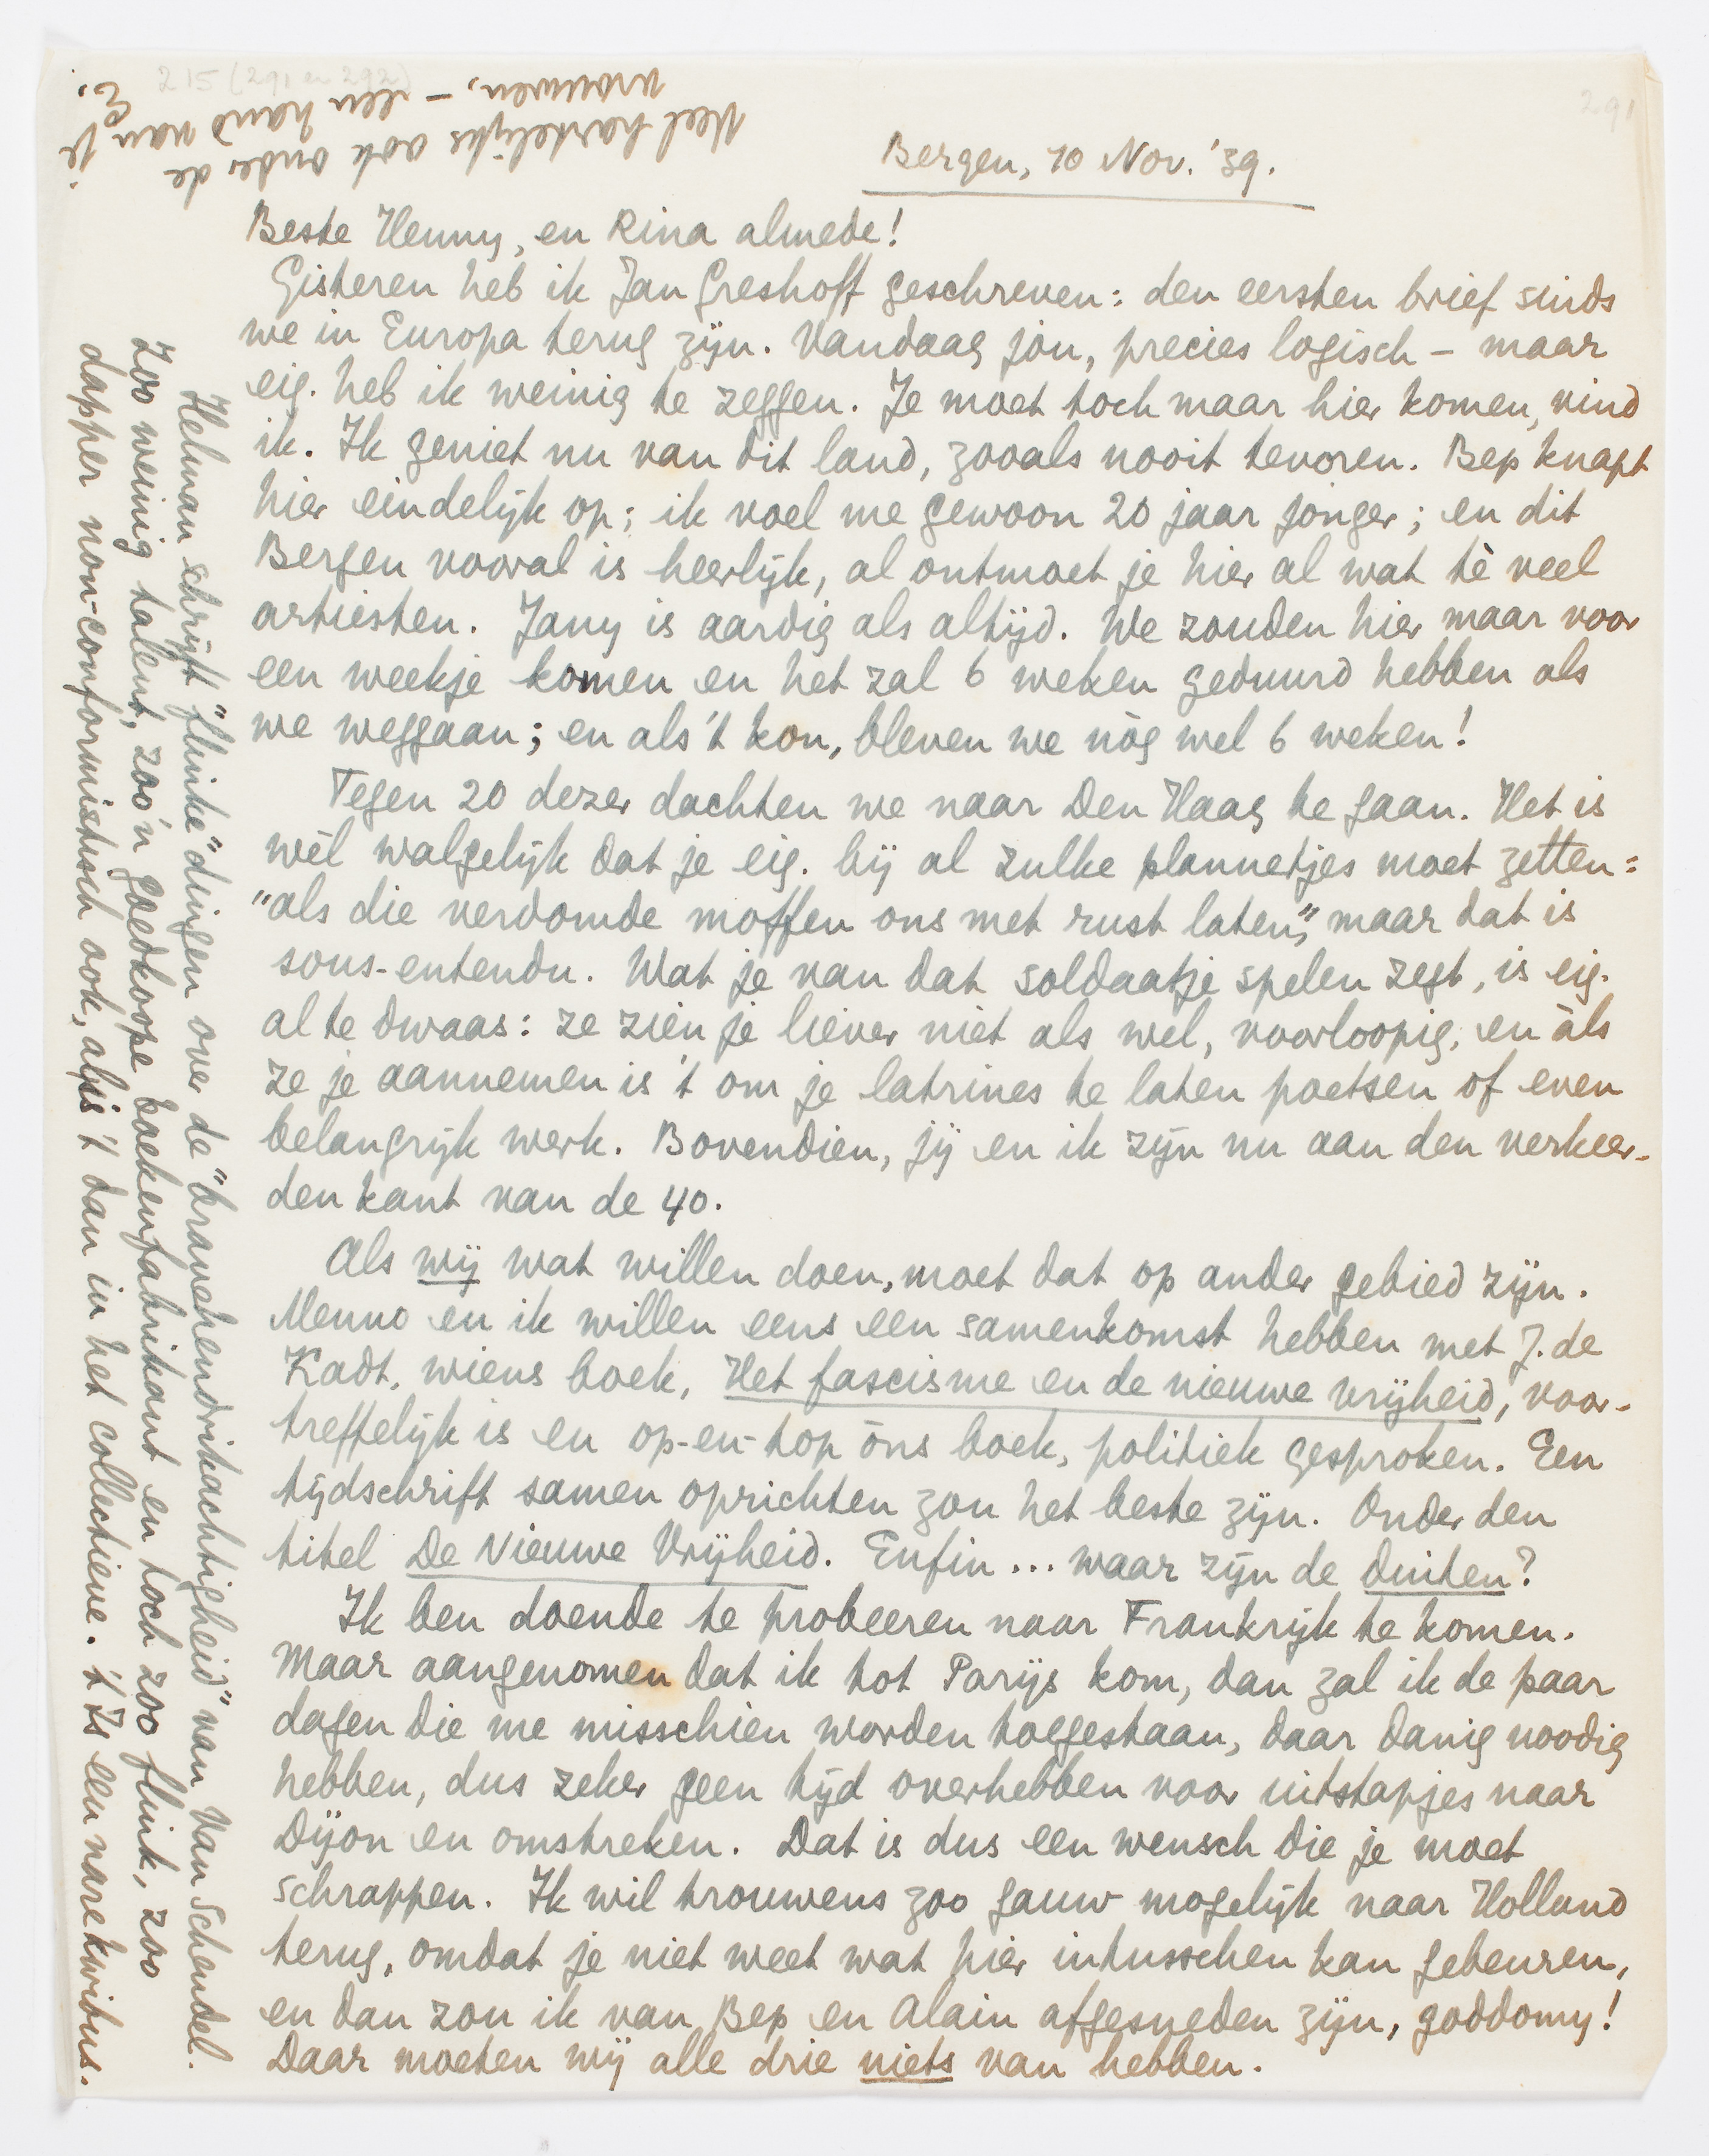 215 (291 en 292)
291
Bergen, 10 Nov. '39.
Beste Henny, en Rina almede!
Gisteren heb ik Jan Greshoff geschreven: den eersten brief sinds
we in Europa terug zijn. Vandaag jou, precies logisch – maar
eig. heb ik weinig te zeggen. Je moet toch maar hier komen, vind
ik. Ik geniet nu van dit land, zooals nooit tevoren. Bep knapt
hier eindelijk op; ik voel me gewoon 20 jaar jonger; en dit
Bergen vooral is heerlijk, al ontmoet je hier al wat tè veel
artiesten. Jany is aardig als altijd. We zouden hier maar voor
een weekje komen en het zal 6 weken geduurd hebben als
we weggaan; en als 't kon, bleven we nòg wel 6 weken!
Tegen 20 dezer dachten we naar Den Haag te gaan. Het is
wèl walgelijk dat je eig. bij al zulke plannetjes moet zetten:
"als die verdomde moffen ons met rust laten", maar dat is
sous-entendu. Wat je van dat soldaatje spelen zegt, is eig.
al te dwaas: ze zien je liever niet als wel, voorloopig, en àls
ze je aannemen is 't om je latrines te laten poetsen of even
belangrijk werk. Bovendien, jij en ik zijn nu aan den verkeer-
den kant van de 40.
Als wij wat willen doen, moet dat op ander gebied zijn.
Menno en ik willen eens een samenkomst hebben met J. de
Kadt, wiens boek, Het fascisme en de nieuwe vrijheid, voor-
treffelijk is en op-en-top òns boek, politiek gesproken. Een
tijdschrift samen oprichten zou het beste zijn. Onder den
titel De Nieuwe Vrijheid. Enfin... waar zijn de duiten?
Ik ben doende te probeeren naar Frankrijk te komen.
Maar aangenomen dat ik tot Parijs kom, dan zal ik de paar
dagen die me misschien worden toegestaan, daar danig noodig
hebben, dus zeker geen tijd overhebben voor uitstapjes naar
Dijon en omstreken. Dat is dus een wensch die je moet
schrappen. Ik wil trouwens zoo gauw mogelijk naar Holland
terug, omdat je niet weet wat hier intusschen kan gebeuren,
en dan zou ik van Bep en Alain afgesneden zijn, goddomy!
Daar moeten wij alle drie niets van hebben.
Helman schrijft "flinke" dingen over de "bravehendrikachtigheid" van Van Schendel.
Zoo weinig talent, zoo'n goedkoope boekenfabrikant en toch zoo flink, zoo
dapper non-conformistisch ook, al is 't dan in het collectieve. 't Is een nare kwibus.
Veel hartelijks ook onder de
vrouwen, – een hand van je
E.